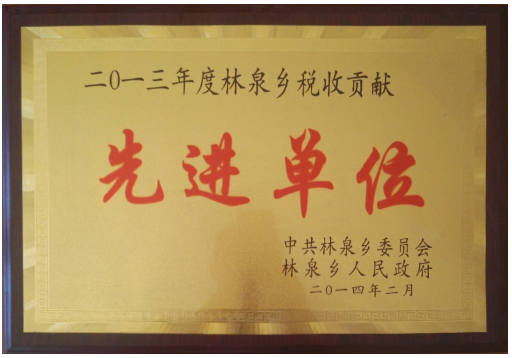 二〇一三年度林泉乡税收贡献
先进单位
中共林泉乡委员会
林泉乡人民政府
二〇一四年二月